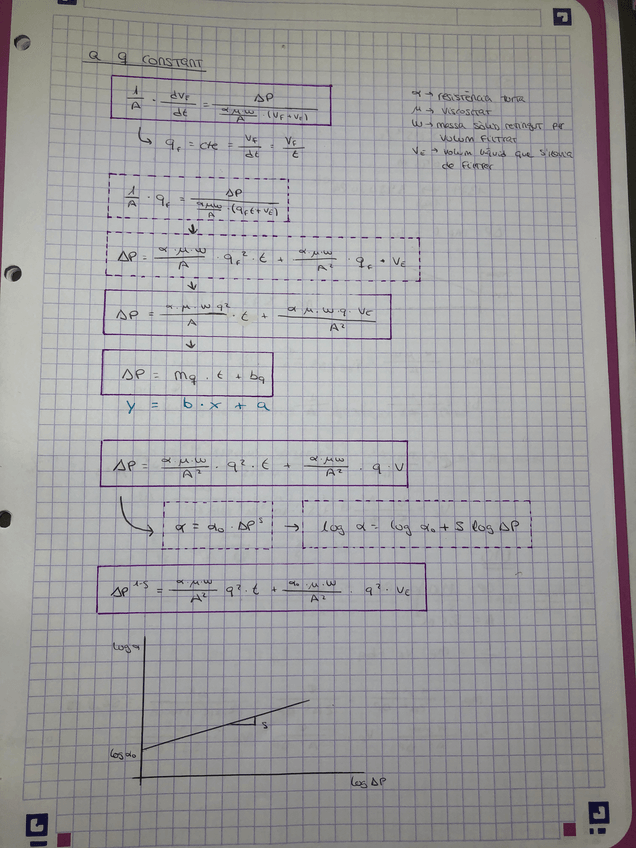 a q constant
1/A · dV_F/dt = ΔP / (α·μ·w/A · (V_F + V_E))
α → resistència torta
μ → viscositat
w → massa sòlids retingut per
volum filtrat
V_E → volum líquid que s'hauria
de filtrar
↳ q_F = cte = V_F/dt = V_F/t
1/A · q_F = ΔP / (αμw/A · (q_F t + V_E))
↓
ΔP = α·μ·w/A · q_F² · t + α·μ·w/A² · q_F · V_E
↓
ΔP = α·μ·w·q²/A · t + α·μ·w·q·V_E/A²
↓
ΔP = mq · t + bq
y = b · x + a
ΔP = α·μ·w/A² · q² · t + α·μw/A² · q V
α = α₀ · ΔP^s → log α = log α₀ + S log ΔP
ΔP^1-S = α·μ·w/A² q² · t + α₀·μ·w/A² · q² · V_E
S
log α₀
log ΔP